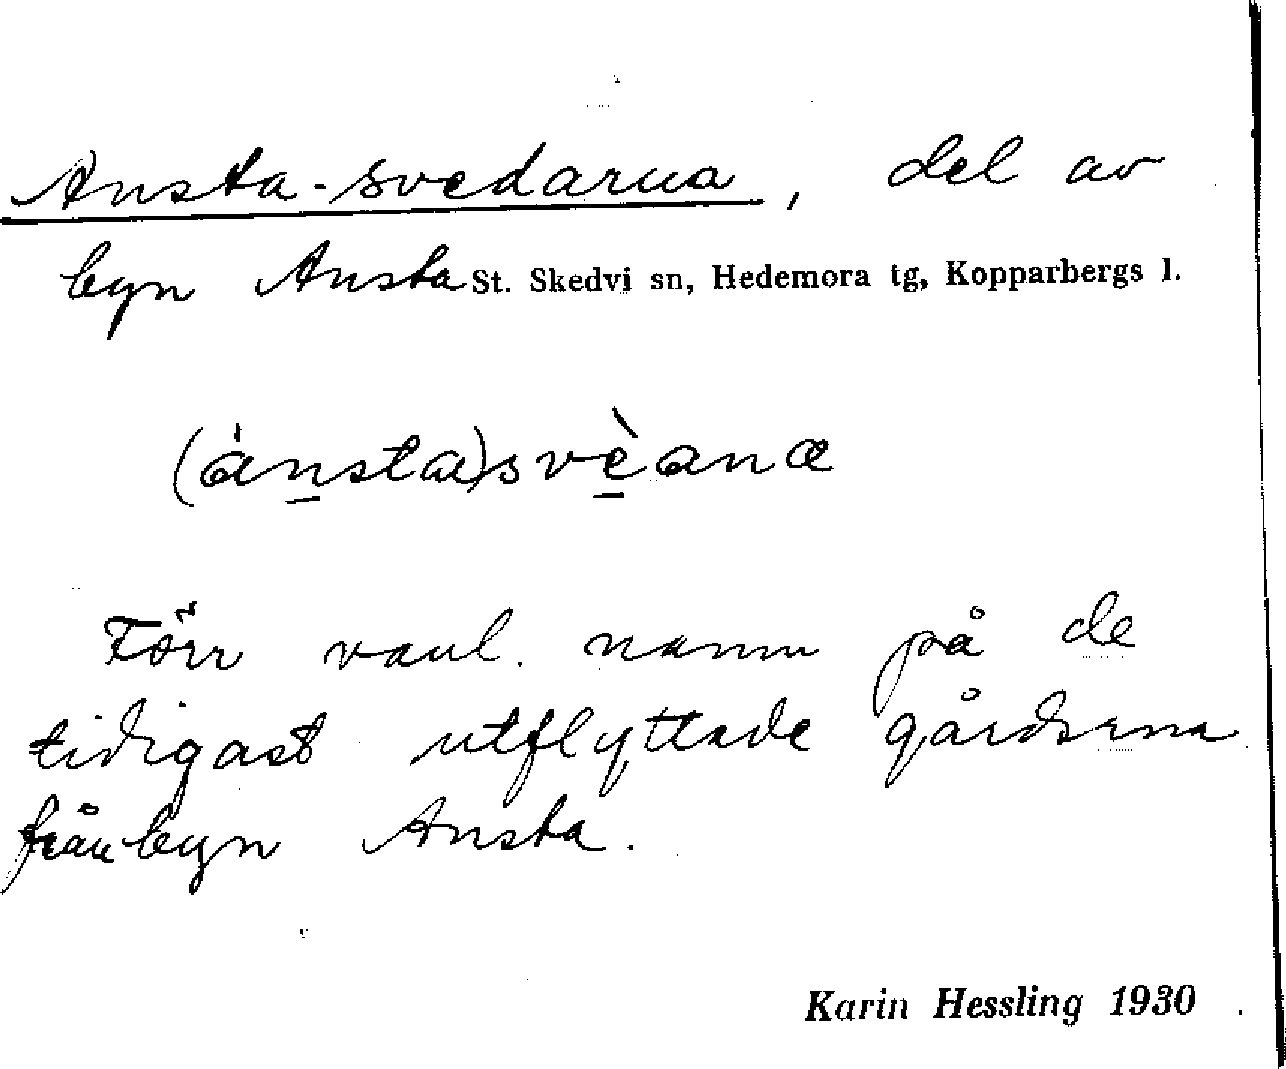 Ansta-svedarna, del av
byn Ansta St. Skedvi sn, Hedemora tg, Kopparbergs l.
(a̍n̲sta)svè̲ana
Förr vanl. namn på de
tidigast utflyttade gårdarna
från byn Ansta.
Karin Hessling 1930